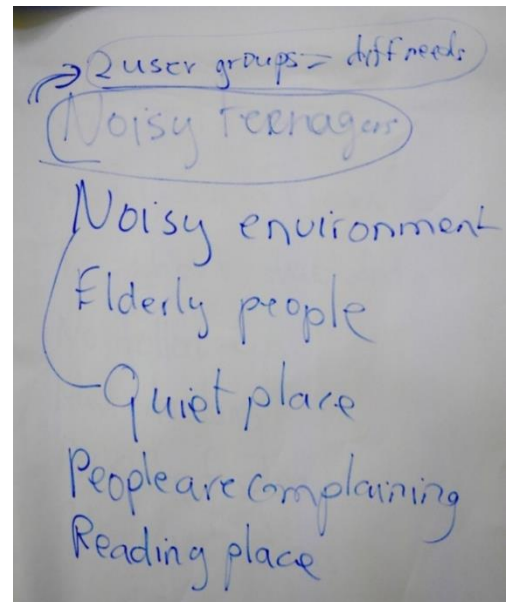 2 user groups = diff needs
Noisy teenagers
Noisy environment
Elderly people
Quiet place
People are complaining
Reading place